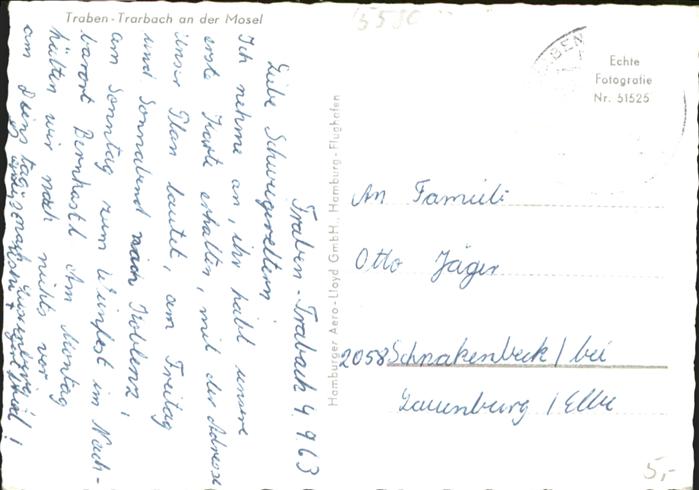 Traben-Trarbach an der Mosel
558C
BEN
Echte
Fotografie
Nr. 51525
Traben-Trabach 4. 9 63
Liebe Schwiegereltern
Ich nehme an, ihr habt unsere
erste Karte erhalten, mit der Adresse
unser Plan lautet, am Freitag
und Sonnabend nach Koblenz,
am Sonntag zum Weinfest im Nach-
barort Bernkastel Am Montag
hätten wir noch nichts vor
am Dienstag nach Luxemburg!
Hamburger Aero-Lloyd GmbH., Hamburg-Flughafen
An Famili:
Otto Jäger
2058 Schnakenbeck / bei
Lauenburg / Elbe
5,-